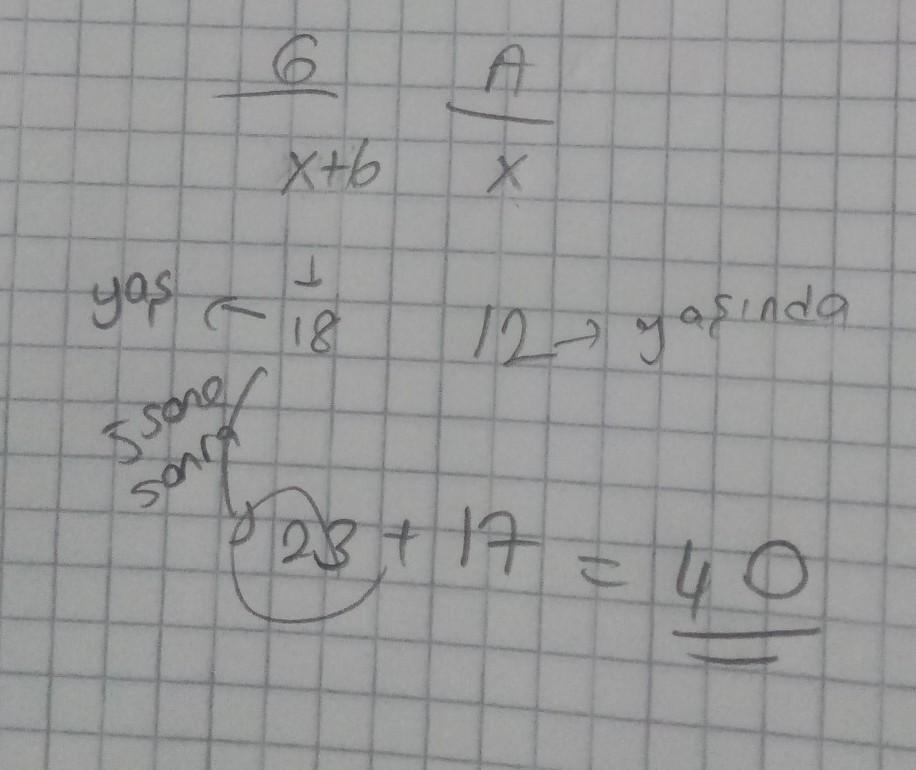 6 A
x+6 x
yaş ← 1/18 12 → yaşında
5 sene
sonra
23 + 17 = 40